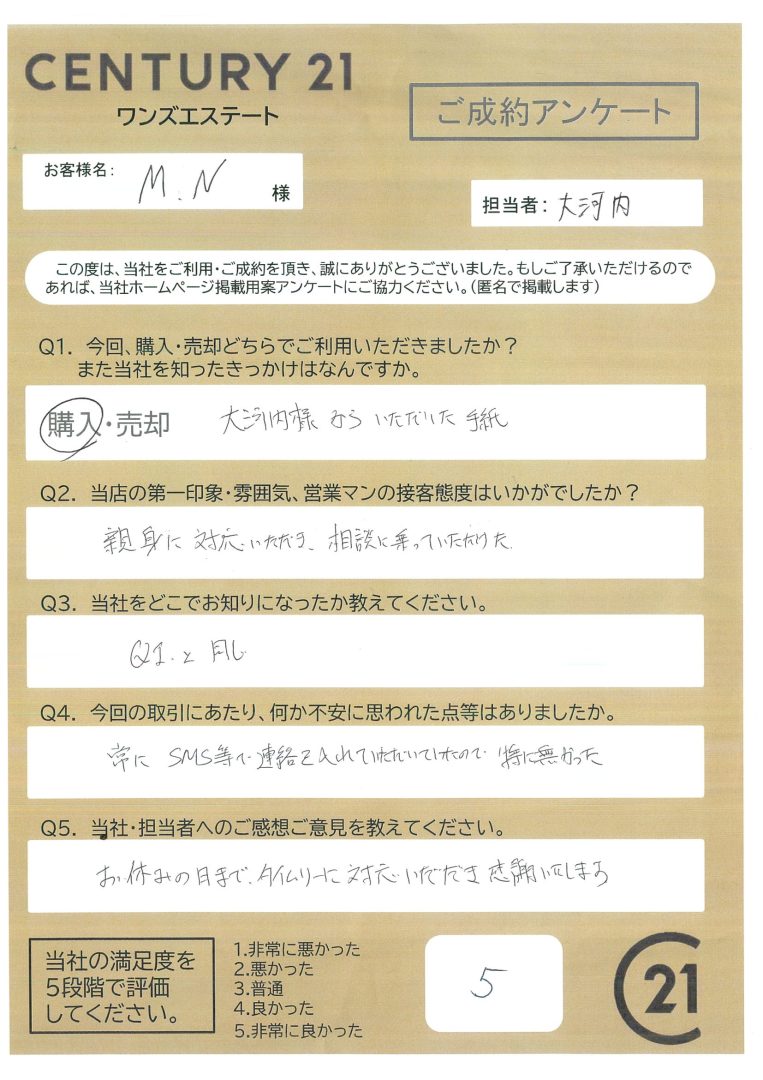 CENTURY 21
ワンズエステート
ご成約アンケート
お客様名: M.N 様
担当者: 大河内
この度は、当社をご利用・ご成約を頂き、誠にありがとうございました。もしご了承いただけるので
あれば、当社ホームページ掲載用案アンケートにご協力ください。(匿名で掲載します)
Q1. 今回、購入・売却どちらでご利用いただきましたか?
また当社を知ったきっかけはなんですか。
購入・売却 大河内様からいただいた手紙
Q2. 当店の第一印象・雰囲気、営業マンの接客態度はいかがでしたか?
親身に対応いただき、相談に乗っていただけた.
Q3. 当社をどこでお知りになったか教えてください。
Q1.と同じ
Q4. 今回の取引にあたり、何か不安に思われた点等はありましたか。
常にSMS等で連絡を入れていただいていたので特に無かった
Q5. 当社・担当者へのご感想ご意見を教えてください。
お休みの日まで、タイムリーに対応いただき感謝いたします
当社の満足度を
5段階で評価
してください。
1.非常に悪かった
2.悪かった
3.普通
4.良かった
5.非常に良かった
5
C21